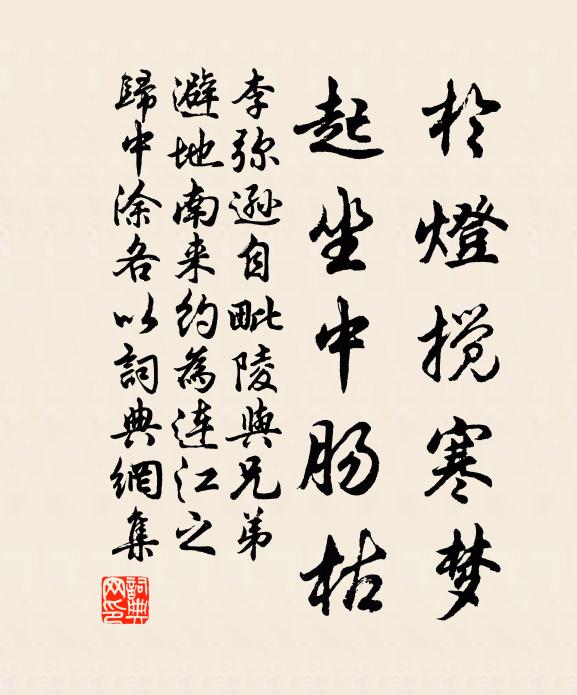 於燈搅寒梦
起坐中肠枯
李弥遜自毗陵與兄弟
避地南来約為連江之
歸中涂各以詞典網集
詞典網印